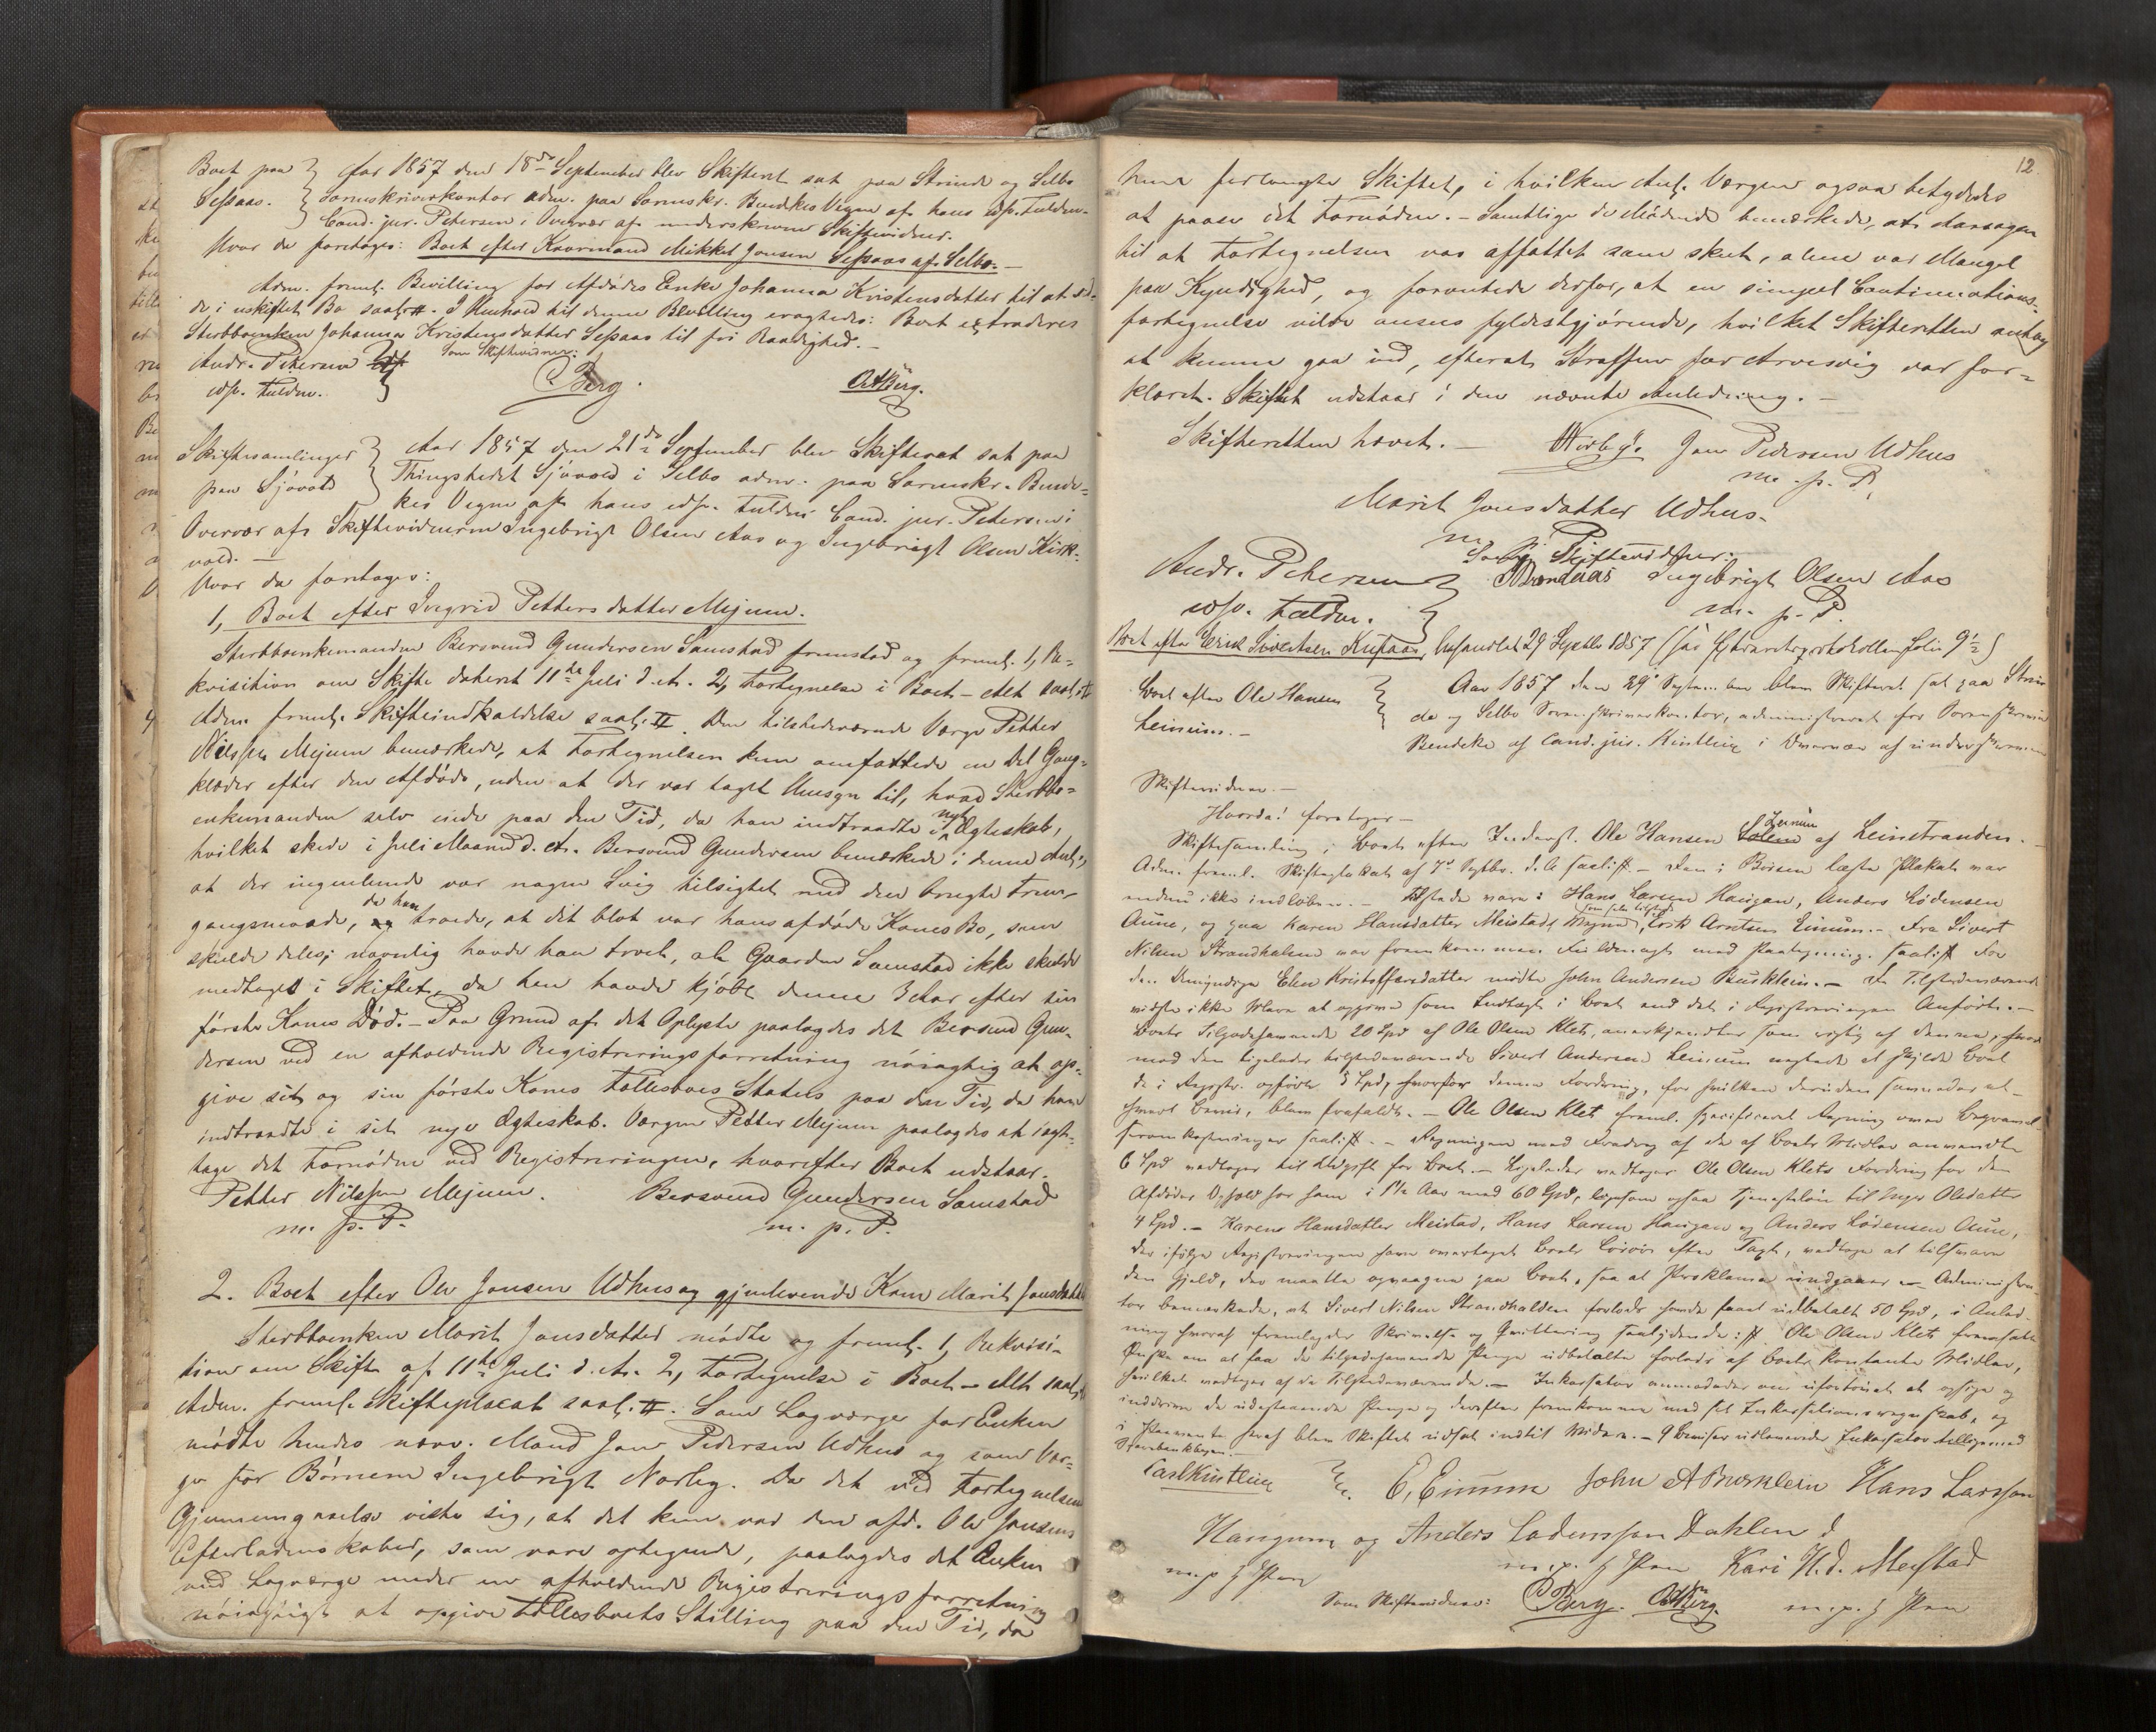 Boet paa } Aar 1857 den 18de September blev Skifteret sat paa Strinde og Selbo
Sessaas. } Sorenskriverkontor adm. paa Sorenskr. Bendekes Vegne af hans edsv. Fuldm.
Cand. jur. Petersen i Overvær af underskrevne Skiftevidner.
Hvor da foretages: Boet efter Kaarmand Mikkel Jonsen Sessaas af Selbo.
Adm. freml. Bevilling for Afdødes Enke Johanna Kristensdatter til at sid-
de i uskiftet Bo saal. #. I Henhold til denne Bevilling eragtedes: Boet extraderes
Sterbboenken Johanna Kristensdatter Sessaas til fri Raadighed. -
Andr. Petersen Som Skiftevidner:
edsv. Fuldm. CBerg. OABerg.
Skiftesamlinger } Aar 1857 den 21de September blev Skifteret sat paa
paa Sjøvold } Thingstedet Sjøvold i Selbo adm. paa Sorenskr. Bende-
kes Vegne af hans edsv. Fuldm. Cand. jur. Petersen i
Overvær af Skiftevidnerne Ingebrigt Olsen Aas og Ingebrigt Olsen Kirk-
vold. -
Hvor da foretages:
1, Boet efter Ingrid Pettersdatter Mejum.
Sterbboenkemanden Bersvend Gundersen Samstad fremstod og freml. 1, Re-
kvisition om Skifte dateret 11te Juli d. A. 2, Fortegnelse i Boet - Alt saal. #
Adm. freml. Skifteindkaldelse saal. #. Den tilstedeværende Værge Petter
Nilssen Mejum bemærkede, at Fortegnelsen kun omfattede en Del Gang-
klæder efter den Afdøde, uden at der var taget Hensyn til, hvad Sterbbo-
enkemanden selv eiede paa den Tid, da han indtraadte i nyt Ægteskab,
hvilket skede i Juli Maaned d. A. Bersvend Gundersen bemærkede i denne Anl.,
at der ingenlunde var nogen Svig tilsigtet med den brugte Frem-
gangsmaade, da han troede, at det blot var hans afdøde Kones Bo, som
skulde deles; navnlig havde han troet, at Gaarden Samstad ikke skulde
medtages i Skiftet, da han havde kjøbt denne 3 Aar efter sin
første Kones Død. - Paa Grund af det Oplyste paalagdes det Bersvend Gun-
dersen ved en afholdende Registreringsforretning nøiagtig at op-
give sit og sin første Kones Fællesboes Status paa den Tid, da han
indtraadte i sit nye Ægteskab. Værgen Petter Mejum paalagdes at iagt-
tage det Fornødne ved Registreringen, hvorefter Boet udstaar.
Petter Nilssen Mejum. Bersvend Gundersen Samstad
m. p. P. m. p. P.
2. Boet efter Ole Jonsen Udhus og gjenlevende Kone Marit Jonsdatter
Sterbboenken Marit Jonsdatter mødte og freml. 1, Rekvisi-
tion om Skifte af 11te Juli d. A. 2, Fortegnelse i Boet - Alt saal. #
Adm. freml. Skifteplacat saal. #. Som Lagværge for Enken
mødte hendes nærv. Mand Jon Pedersen Udhus og som Vær-
ge for Børnene Ingebrigt Norby. Da det ved Fortegnelsens
Gjennemgaaelse viste sig, at det kun var den afd. Ole Jonsens
Efterladenskaber, som vare optegnede, paalagdes det Enken
med Lagværge under en afholdende Registreringsforretning
nøiagtigt at opgive Fællesboets Stilling paa den Tid, da
12.
hun forlangte Skiftet, i hvilken Anl. Værgen ogsaa betydedes
at paase det Fornødne. - Samtlige de Mødende bemærkede, at Aarsagen
til at Fortegnelsen var affattet som skeet, alene var Mangel
paa Kyndighed, og formentede derfor, at en simpel Continuations-
fortegnelse vilde ansees fyldestgjørende, hvilket Skifteretten antog
at kunne gaa ind, efterat Straffen for Arvesvig var for-
klaret. Skiftet udstaar i den nævnte Anledning. -
Skifteretten hævet. - Norbye Jon Pedersen Udhus
m. p. P.
Marit Jonsdatter Udhus.
m. p. P.
Som Skiftevidner:
Andr. Petersen Ingebrigt Olsen Aas
edsv. Fuldm. m. p. P.
Boet efter Erik Sivertsen behandlet 29 Septbr 1857
Boet efter Ole Hansen } Aar 1857 den 29de September blev Skifteret sat paa Strin
Leinum. - } de og Selbo Sorenskriverkontor, administreret for Sorenskriver
Bendeke af Cand. jur. Kintling i Overvær af underskrevne
Skiftevidner. -
Hvorda! foretages -
Skiftesamling i Boet efter Inderst Ole Hansen Leinum af Leinstranden. -
Adm. freml. Skifteplakat af 7de Septbr. d. A. saal. # - Den i Børsen læste Plakat var
endnu ikke indløben. - Tilstede vare: Hans Larsen Haugan, Anders Lodensen
Aune, og paa Karen Hansdatter Meistads Vegne, Erik Arntsen Einum. - Fra Sivert
Nilsen Strandhalden var fremkommen Fuldmagt med Paategning saal. # For
den Umyndige Elen Kristoffersdatter mødte John Andersen Buskklein. - De Tilstedeværende
vidste ikke Mere at opgive som Indtægt i Boet end det i Registreringen Anførte. -
Boets Tilgodehavende 20 Spd af Ole Olsen Klet, anerkjendtes som rigtig af denne, hvor
mod den ligeledes tilstedeværende Sivert Andersen Leinum negtede at skylde Boet
de i Registr. opførte 5 Spd, hvorfor denne Fordring, for hvilken desuden savnedes et-
hvert Bevis, blev frafaldt. - Ole Olsen Klet freml. specificeret Regning over Begravel-
sesomkostninger saal. # - Regningen med Fradrag af de af Boets Midler anvendte
6 Spd vedtoges til Udgift for Boet. - Ligeledes vedtoges Ole Olsen Klets Fordring for den
Afdødes Ophold hos ham i 1½ Aar med 60 Spd, ligesom ogsaa Tjenesteløn til Inger Olsdatter
4 Spd. - Karen Hansdatter Meistad, Hans Larsen Haugan og Anders Lodensen Aune,
der ifølge Registreringen have overtaget Boets Løsøre efter Taxt, vedtoge at tilsvare
den Gjeld, der maatte opvaagne paa Boet, saa at Proklama undgaaes - Administra-
tor bemærkede, at Sivert Nilsen Strandhalden forlods havde faaet udbetalt 50 Spd, i Anled-
ning hvoraf fremlagdes Skrivelse og Qvittering saalydende: #. Ole Olsen Klet fremsatte
Ønske om at faa de tilgodehavende Penge udbetalte forlods af Boets kontante Midler,
hvilket vedtoges af de Tilstedeværende. - Inkassator anmodedes om ufortøvet at opsige og
inddrive de udestaaende Penge og derefter fremkomme med sit Inkassationsregnskab, og
i Paavente heraf blev Skiftet udsat indtil Videre. - 9 Beviser udleveredes Inkassator tilligemed
Sparebankbogen. -
Carl Kintling E. Einum John A Buskklein Hans Larsson
Haugum og Anders Lodensson Dahlen
m. p. P. m. p. P. Kari H.d. Mestad
Som Skiftevidner: CBerg. OABerg. m. p. P.